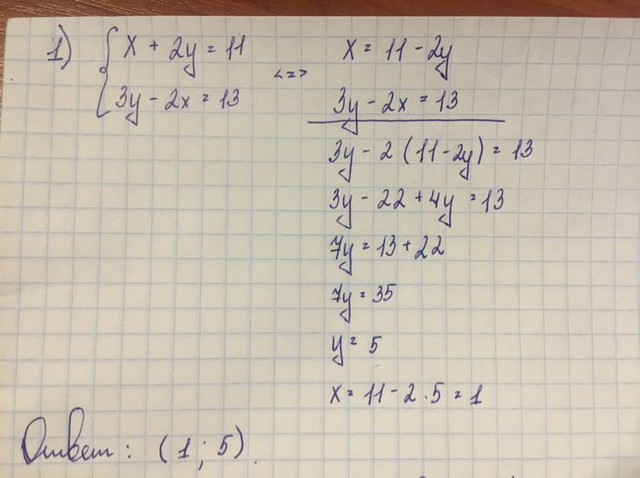 1) { x + 2y = 11 <=> x = 11 - 2y
3y - 2x = 13 3y - 2x = 13
3y - 2 (11 - 2y) = 13
3y - 22 + 4y = 13
7y = 13 + 22
7y = 35
y = 5
x = 11 - 2 · 5 = 1
Ответ: (1; 5).